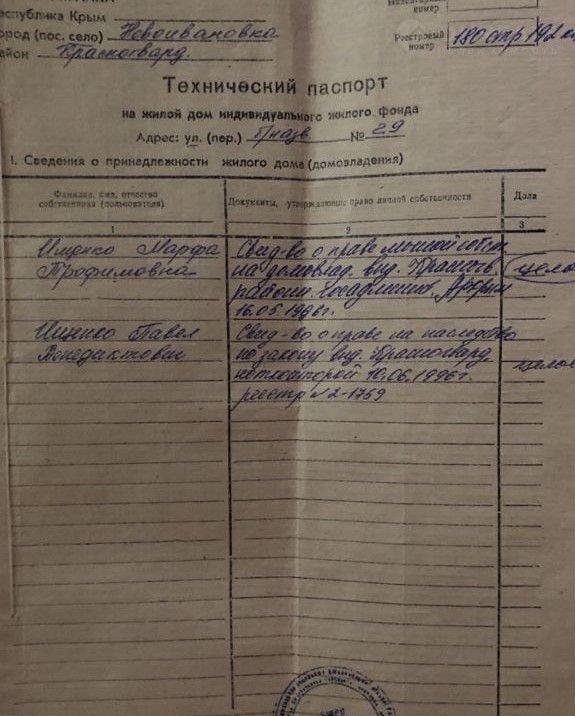 еспублика Крым
ород (пос. село) Новоивановка
айон Красногвард.
номер
Реестровый номер 180 стр 192
Технический паспорт
на жилой дом индивидуального жилого фонда
Адрес: ул. (пер.) б/назв № 29
I. Сведения о принадлежности жилого дома (домовладения)
Фамилия, имя, отчество собственника (пользователя)
Документы, утверждающие право личной собственности
Доля
1
2
3
Ищенко Марфа
Трофимовна
Свид-во о праве личной собств.
на домовлад. выд. Красногв.
район.
16.05 1996г.
цело
Ищенко Павел
Венедиктович
Свид-во о праве на наследство
по закону выд. Красногвард.
нотконторой 10.06.1996г.
реестр № 2-1769
целое